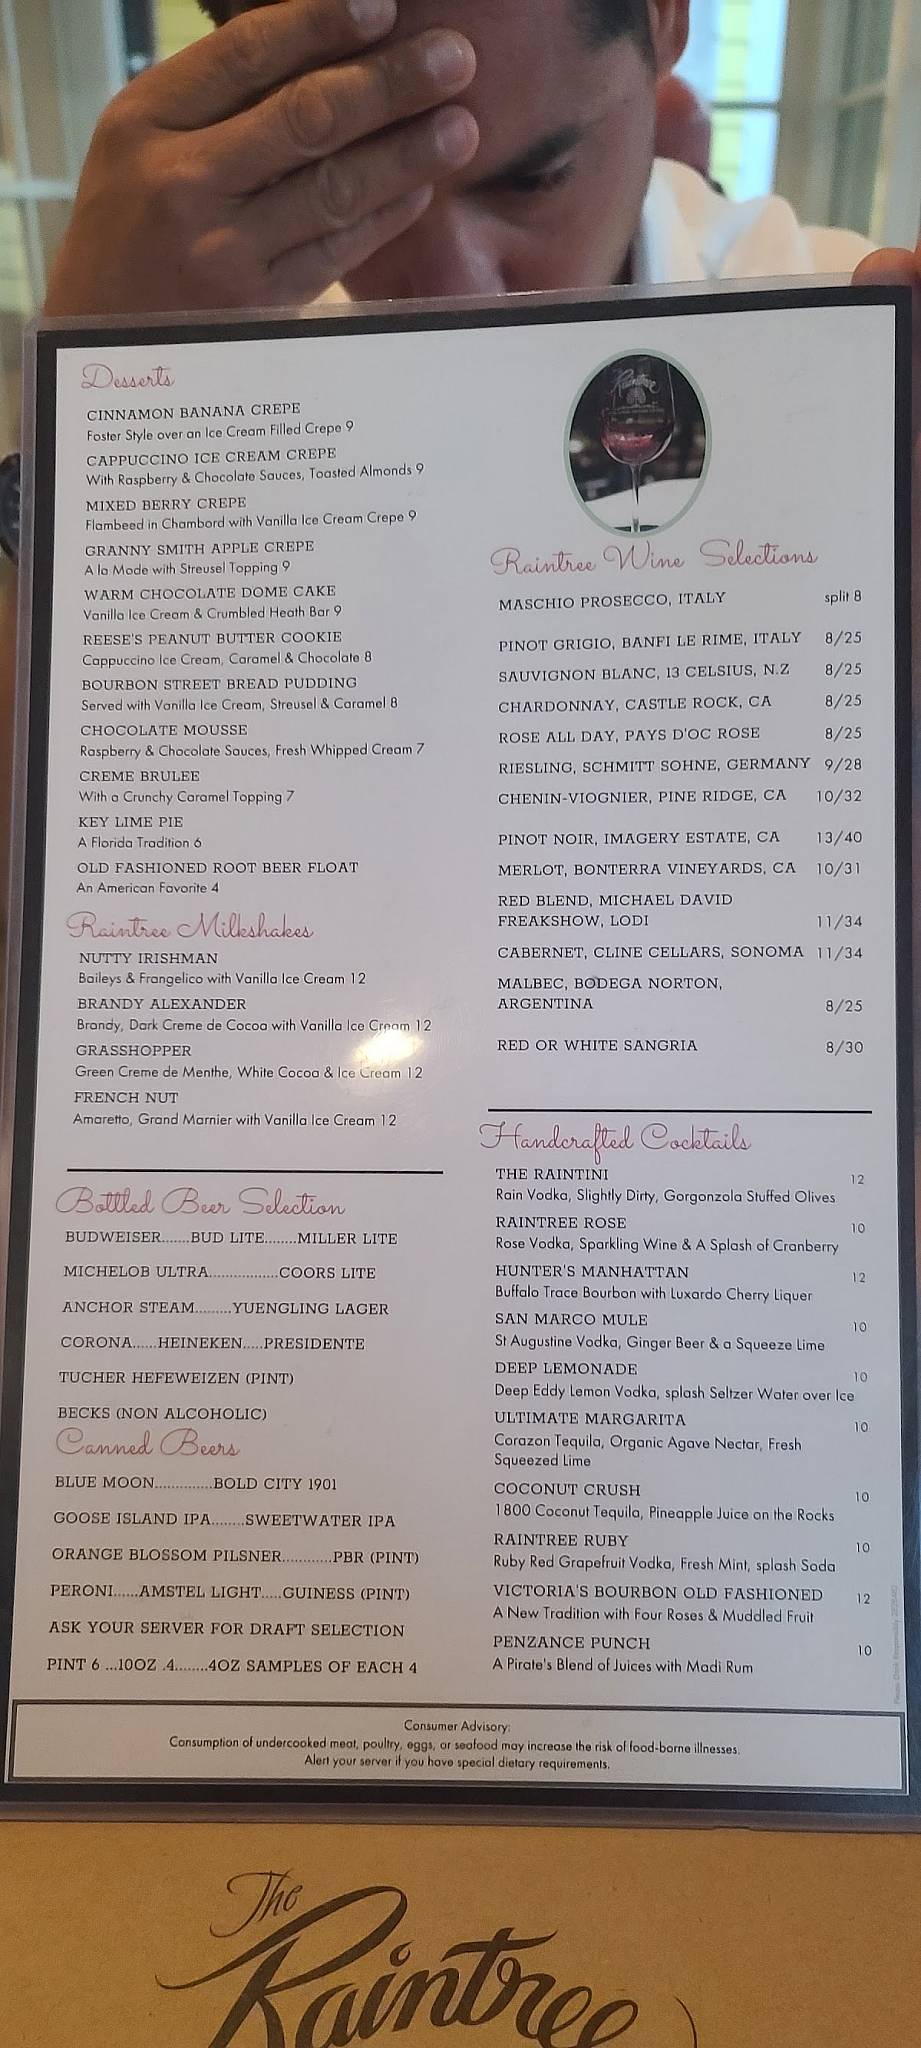 Desserts
CINNAMON BANANA CREPE
Foster Style over an Ice Cream Filled Crepe 9
CAPPUCCINO ICE CREAM CREPE
With Raspberry & Chocolate Sauces, Toasted Almonds 9
MIXED BERRY CREPE
Flambeed in Chambord with Vanilla Ice Cream Crepe 9
GRANNY SMITH APPLE CREPE
A la Mode with Streusel Topping 9
WARM CHOCOLATE DOME CAKE
Vanilla Ice Cream & Crumbled Heath Bar 9
REESE'S PEANUT BUTTER COOKIE
Cappuccino Ice Cream, Caramel & Chocolate 8
BOURBON STREET BREAD PUDDING
Served with Vanilla Ice Cream, Streusel & Caramel 8
CHOCOLATE MOUSSE
Raspberry & Chocolate Sauces, Fresh Whipped Cream 7
CREME BRULEE
With a Crunchy Caramel Topping 7
KEY LIME PIE
A Florida Tradition 6
OLD FASHIONED ROOT BEER FLOAT
An American Favorite 4
Raintree Milkshakes
NUTTY IRISHMAN
Baileys & Frangelico with Vanilla Ice Cream 12
BRANDY ALEXANDER
Brandy, Dark Creme de Cocoa with Vanilla Ice Cream 12
GRASSHOPPER
Green Creme de Menthe, White Cocoa & Ice Cream 12
FRENCH NUT
Amaretto, Grand Marnier with Vanilla Ice Cream 12
Bottled Beer Selection
BUDWEISER.......BUD LITE........MILLER LITE
MICHELOB ULTRA.................COORS LITE
ANCHOR STEAM.........YUENGLING LAGER
CORONA......HEINEKEN.....PRESIDENTE
TUCHER HEFEWEIZEN (PINT)
BECKS (NON ALCOHOLIC)
Canned Beers
BLUE MOON..............BOLD CITY 1901
GOOSE ISLAND IPA........SWEETWATER IPA
ORANGE BLOSSOM PILSNER............PBR (PINT)
PERONI......AMSTEL LIGHT.....GUINESS (PINT)
ASK YOUR SERVER FOR DRAFT SELECTION
PINT 6 ...10OZ .4........4OZ SAMPLES OF EACH 4
Raintree
Raintree Wine Selections
MASCHIO PROSECCO, ITALY split 8
PINOT GRIGIO, BANFI LE RIME, ITALY 8/25
SAUVIGNON BLANC, 13 CELSIUS, N.Z 8/25
CHARDONNAY, CASTLE ROCK, CA 8/25
ROSE ALL DAY, PAYS D'OC ROSE 8/25
RIESLING, SCHMITT SOHNE, GERMANY 9/28
CHENIN-VIOGNIER, PINE RIDGE, CA 10/32
PINOT NOIR, IMAGERY ESTATE, CA 13/40
MERLOT, BONTERRA VINEYARDS, CA 10/31
RED BLEND, MICHAEL DAVID
FREAKSHOW, LODI 11/34
CABERNET, CLINE CELLARS, SONOMA 11/34
MALBEC, BODEGA NORTON,
ARGENTINA 8/25
RED OR WHITE SANGRIA 8/30
Handcrafted Cocktails
THE RAINTINI 12
Rain Vodka, Slightly Dirty, Gorgonzola Stuffed Olives
RAINTREE ROSE 10
Rose Vodka, Sparkling Wine & A Splash of Cranberry
HUNTER'S MANHATTAN 12
Buffalo Trace Bourbon with Luxardo Cherry Liquer
SAN MARCO MULE 10
St Augustine Vodka, Ginger Beer & a Squeeze Lime
DEEP LEMONADE 10
Deep Eddy Lemon Vodka, splash Seltzer Water over Ice
ULTIMATE MARGARITA 10
Corazon Tequila, Organic Agave Nectar, Fresh
Squeezed Lime
COCONUT CRUSH 10
1800 Coconut Tequila, Pineapple Juice on the Rocks
RAINTREE RUBY 10
Ruby Red Grapefruit Vodka, Fresh Mint, splash Soda
VICTORIA'S BOURBON OLD FASHIONED 12
A New Tradition with Four Roses & Muddled Fruit
PENZANCE PUNCH 10
A Pirate's Blend of Juices with Madi Rum
Consumer Advisory:
Consumption of undercooked meat, poultry, eggs, or seafood may increase the risk of food-borne illnesses.
Alert your server if you have special dietary requirements.
The
Raintree